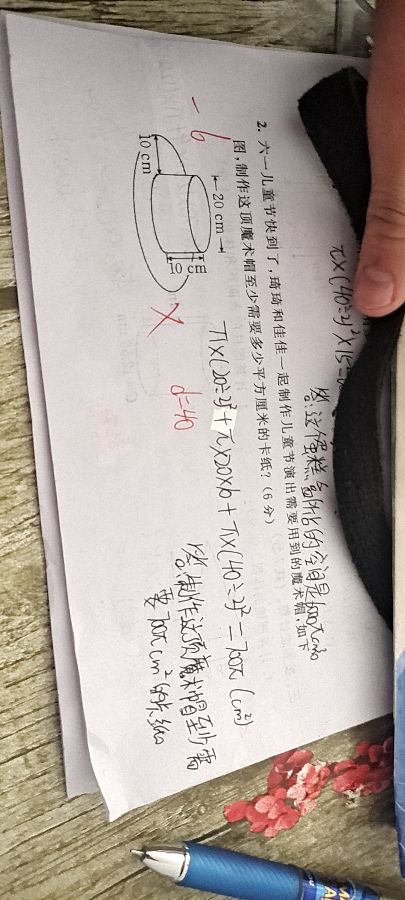 π×(40÷2)²×15=
答:这个蛋糕盒所占的空间是6000πcm³
2. 六一儿童节快到了,琦琦和佳佳一起制作儿童节演出需要用到的魔术帽,如下
图,制作这顶魔术帽至少需要多少平方厘米的卡纸?(6分)
-6
20 cm
10 cm
10 cm
π×(20÷2)²+π×20×10+π×(40÷2)²=700π(cm²)
d=40
答:制作这顶魔术帽至少需
要700πcm²的卡纸